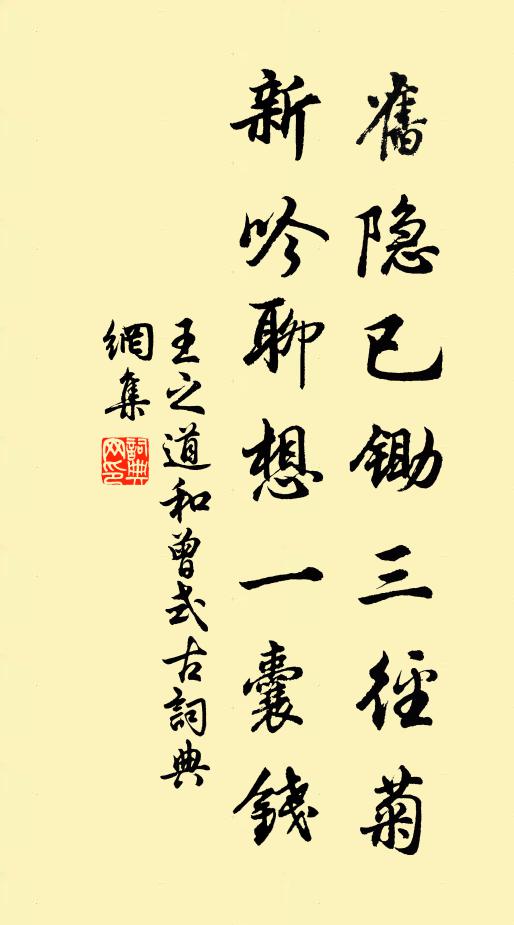 舊隐已鋤三徑菊
新吟聊想一囊錢
王之道和曾式古詞典
網集
詞典
网印